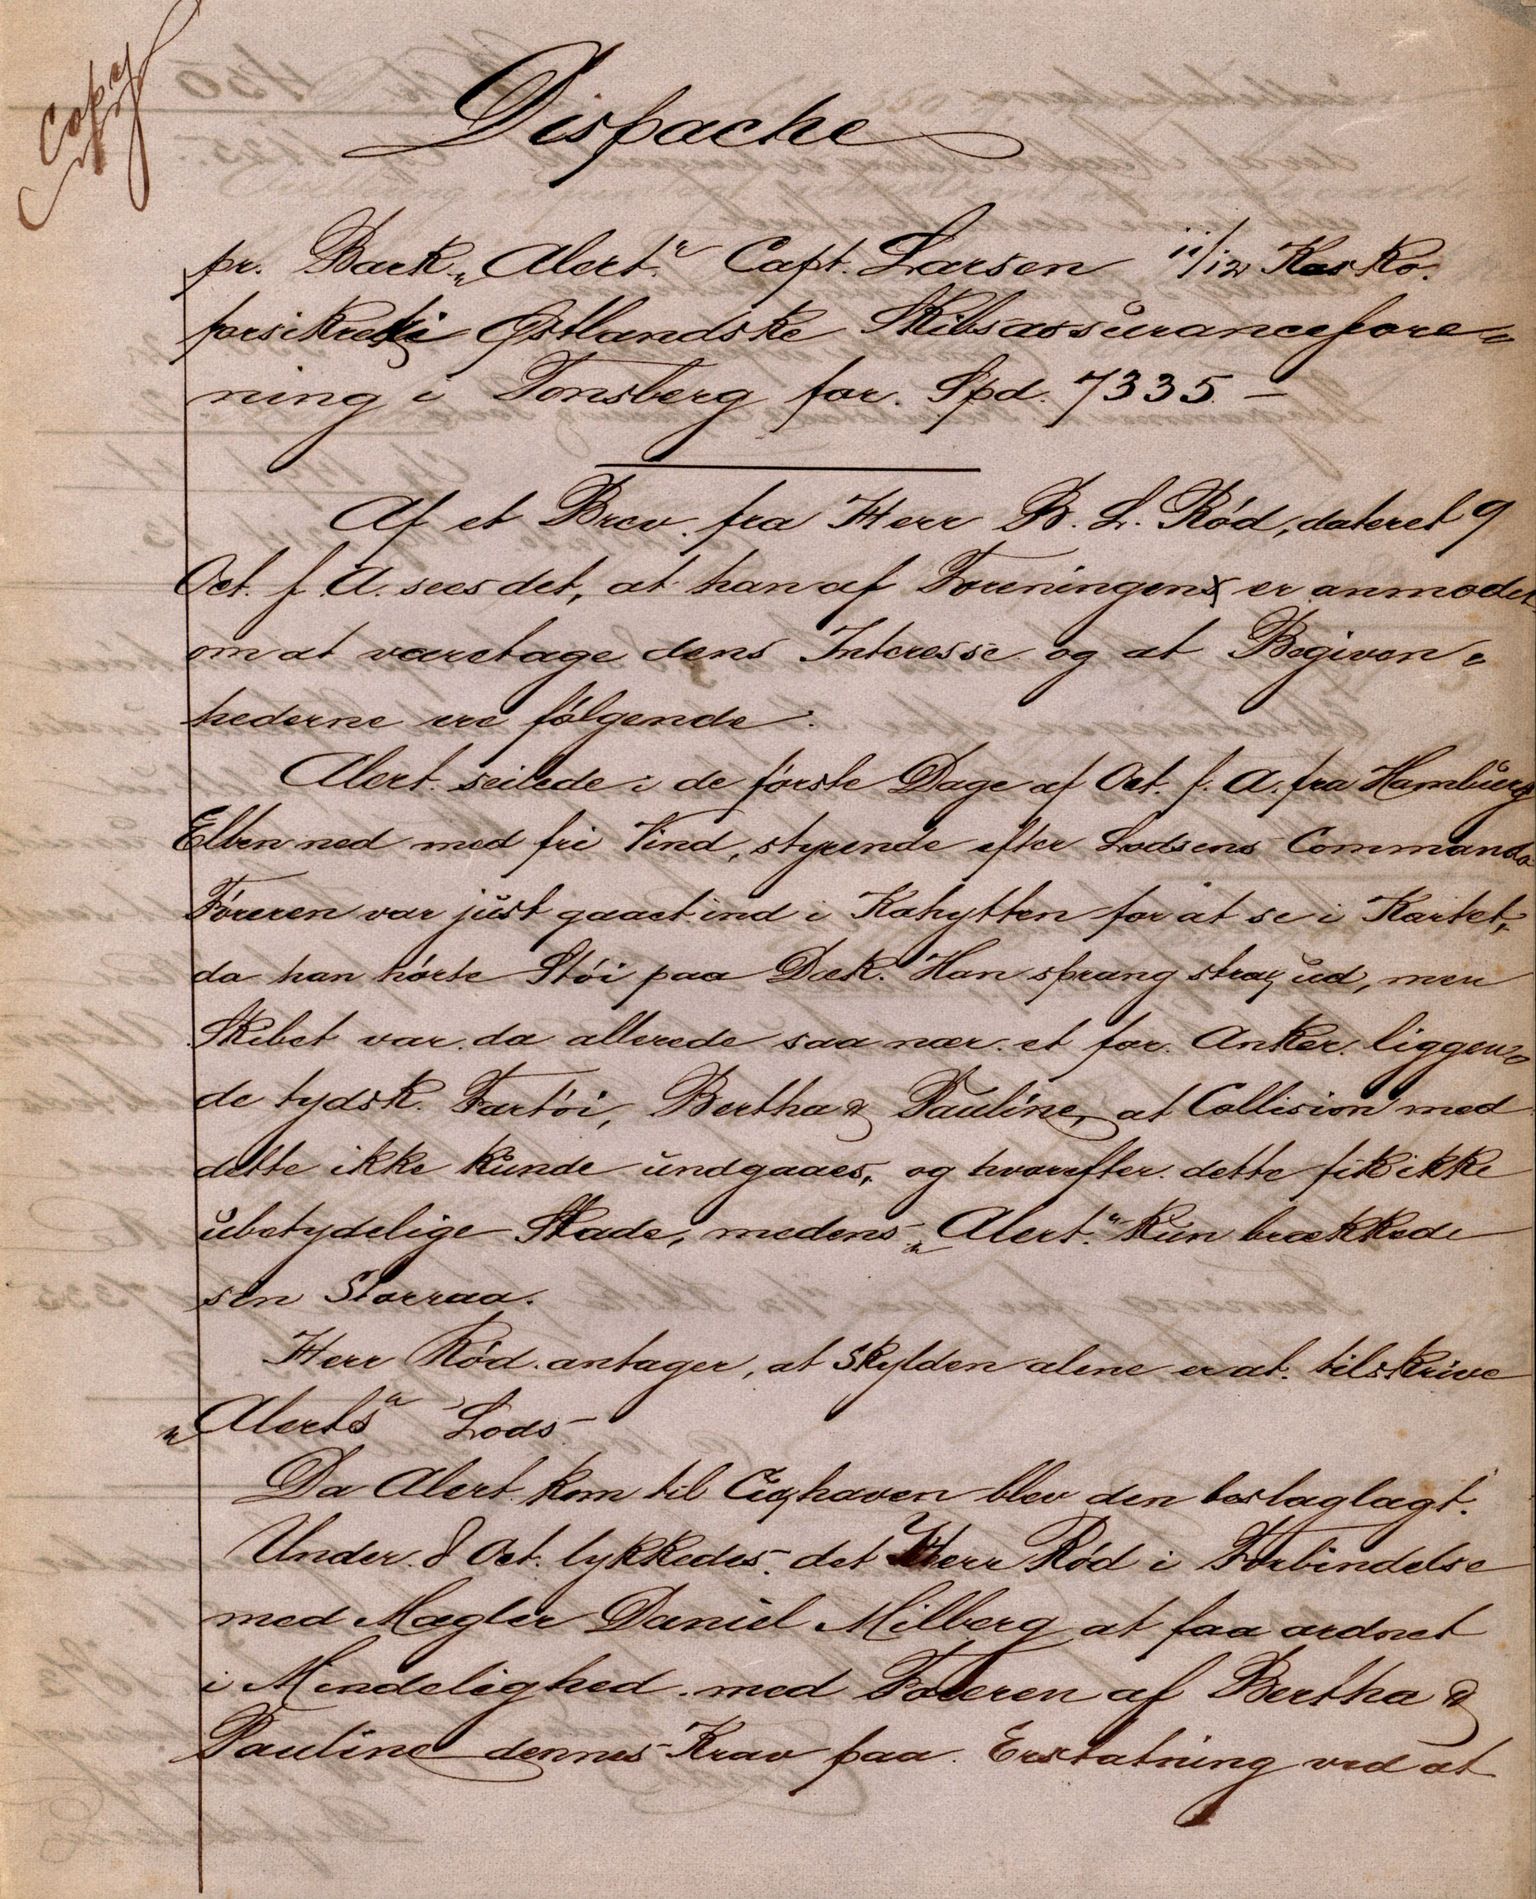 Copy
Dispache
pr. Bark „Alert“ Capt. Larsen 11/12 Kasko.
forsikret i Østlandske Skibsassuranceфore=
ning i Tønsberg for. Spd. 7335. —
Af et Brev. fra Herr B. L. Rød, dateret 9
Oct. f. A. sees det, at han af Foreningen er anmodet
om at varetage dens Interesse og at Begiven=
hederne ere følgende:
Alert. seilede i de første Dage af Oct. f. A. fra Hamburg
Elben ned med fri Vind, styrende efter Lodsens Commando
Føreren var just gaaet ind i Kahytten for at se i Kartet,
da han hørte Støi paa Dæk. Han sprang strax ud, men
Skibet var da allerede saa nær et for Anker liggen=
de tydsk. Fartøi, Bertha & Pauline, at Collision med
dette ikke kunde undgaaes, og hvorefter dette fik ikke
ubetydelige Skade, medens „Alert“ kun brækkede
sen Storraa.
Herr Rød antager, at Skylden alene er at tilskrive
„Alerts“ Lods —
Da Alert kom til Cuxhaven blev den beslaglagt.
Under 8 Oct. lykkedes det Herr Rød i Forbindelse
med Mægler Daniel Milberg at faa ordnet
i Mindelighed med Føreren af Bertha &
Pauline dennes Krav paa Erstatning ved at